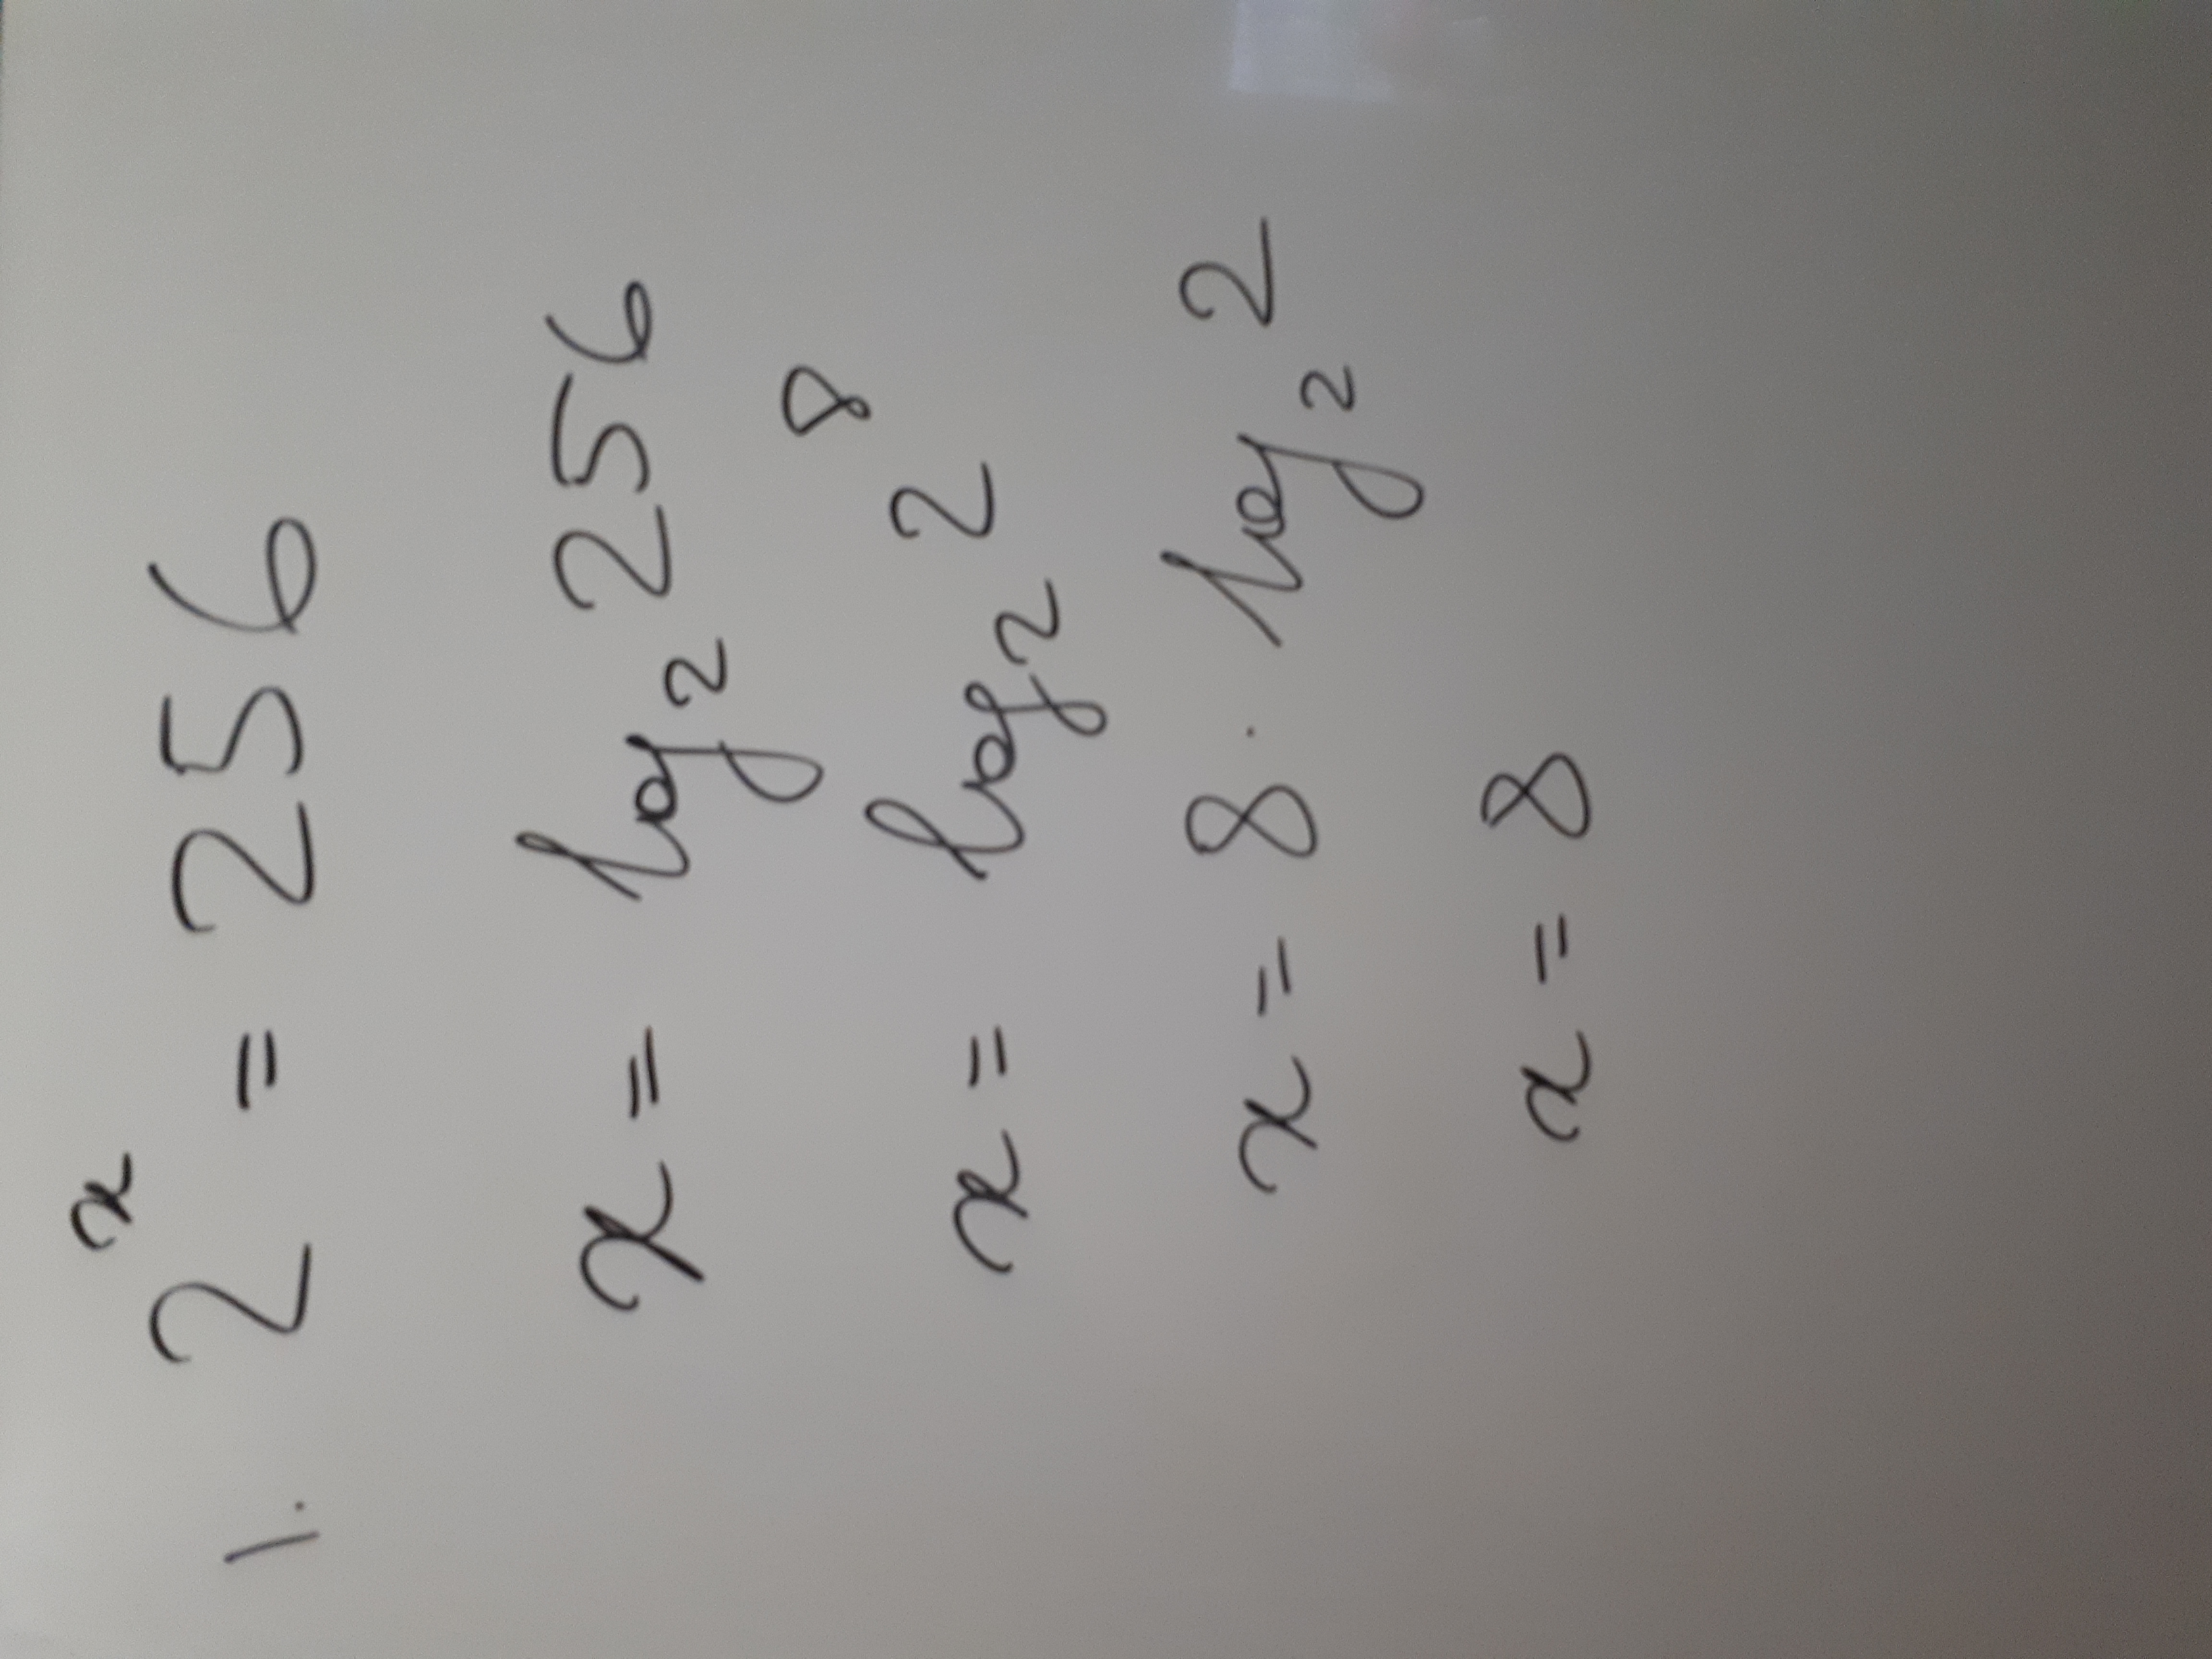 1. 2ˣ = 256
x = log₂ 256
x = log₂ 2⁸
x = 8 · log₂ 2
x = 8